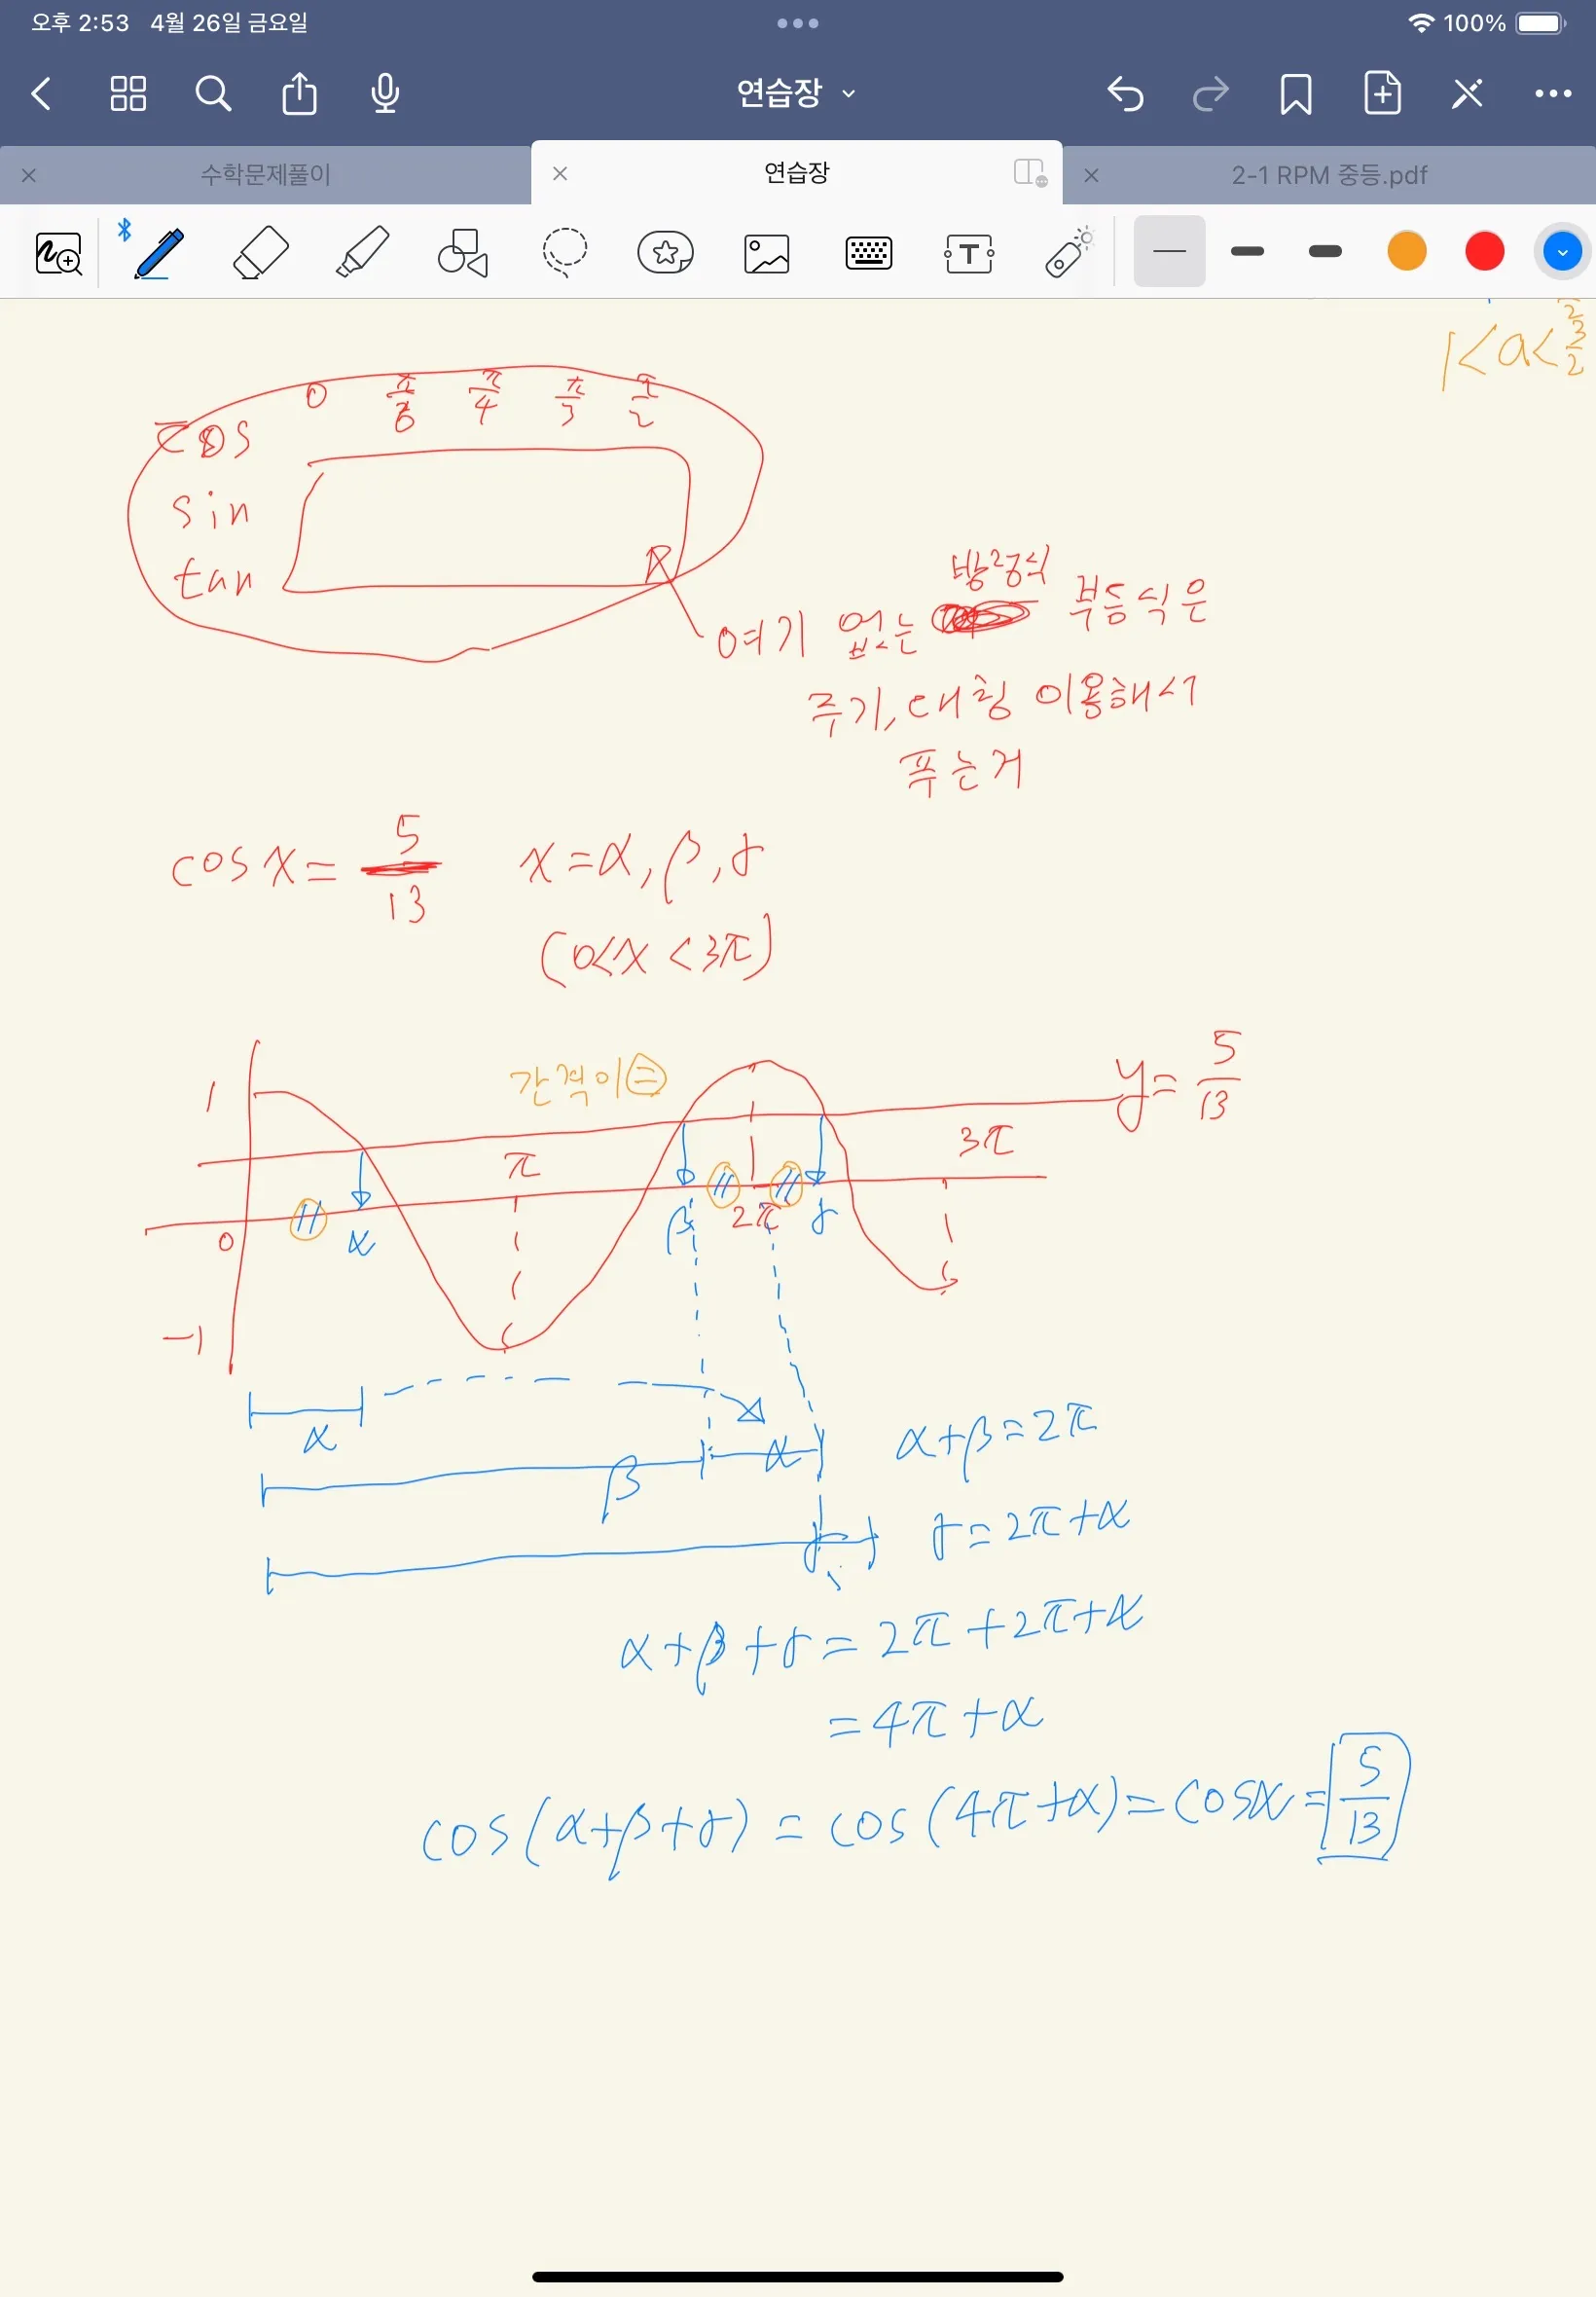 오후 2:53 4월 26일 금요일
100%
연습장
수학문제풀이
연습장
2-1 RPM 중등.pdf
T
1<a<3/2
0 π/6 π/4 π/3 π/2
cos
sin
tan
방정식
여기 없는 부등식은
주기, 대칭 이용해서
푸는거
cos x = 5/13 x = α, β, γ
(0<x<3π)
간격이 =
y = 5/13
1
π
3π
0
α
β
2π
γ
-1
α
β
α
γ
α+β=2π
γ=2π+α
α+β+γ=2π+2π+α
=4π+α
cos(α+β+γ)=cos(4π+α)=cosα=5/13